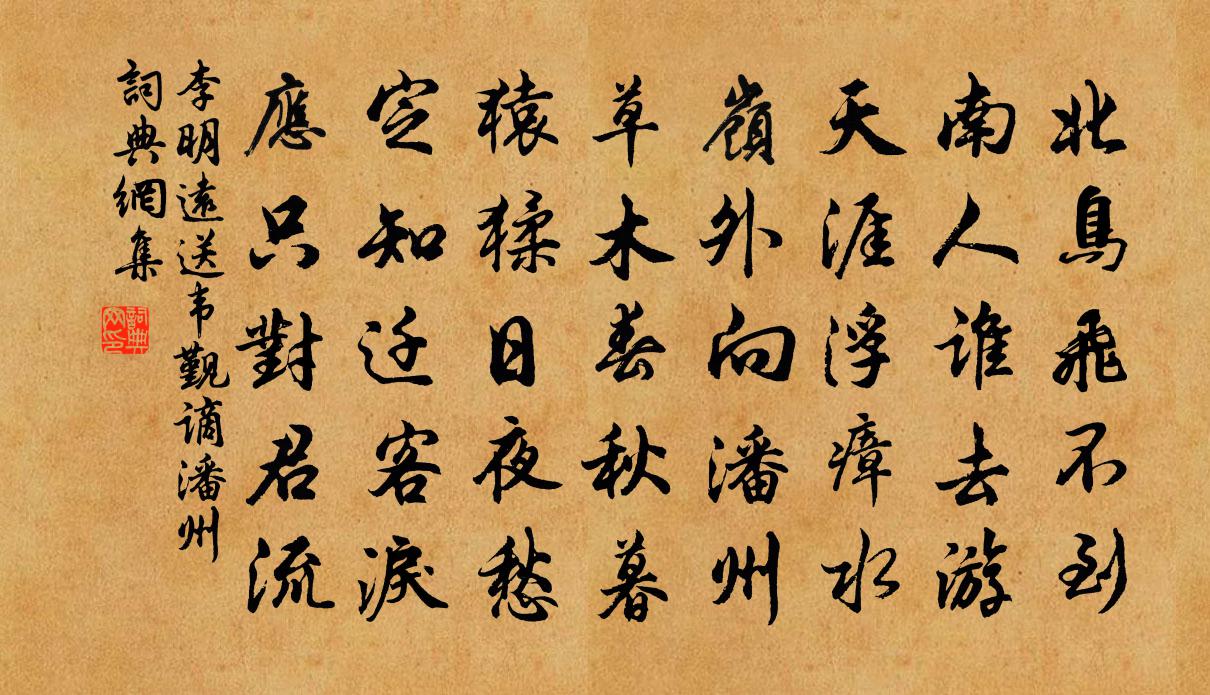 北鳥飛不到
南人誰去游
天涯浮瘴水
嶺外向潘州
草木春秋暮
猿猱日夜愁
定知遷客淚
應只對君流
李明遠送韦觐謫潘州
詞典網集
詞典網印